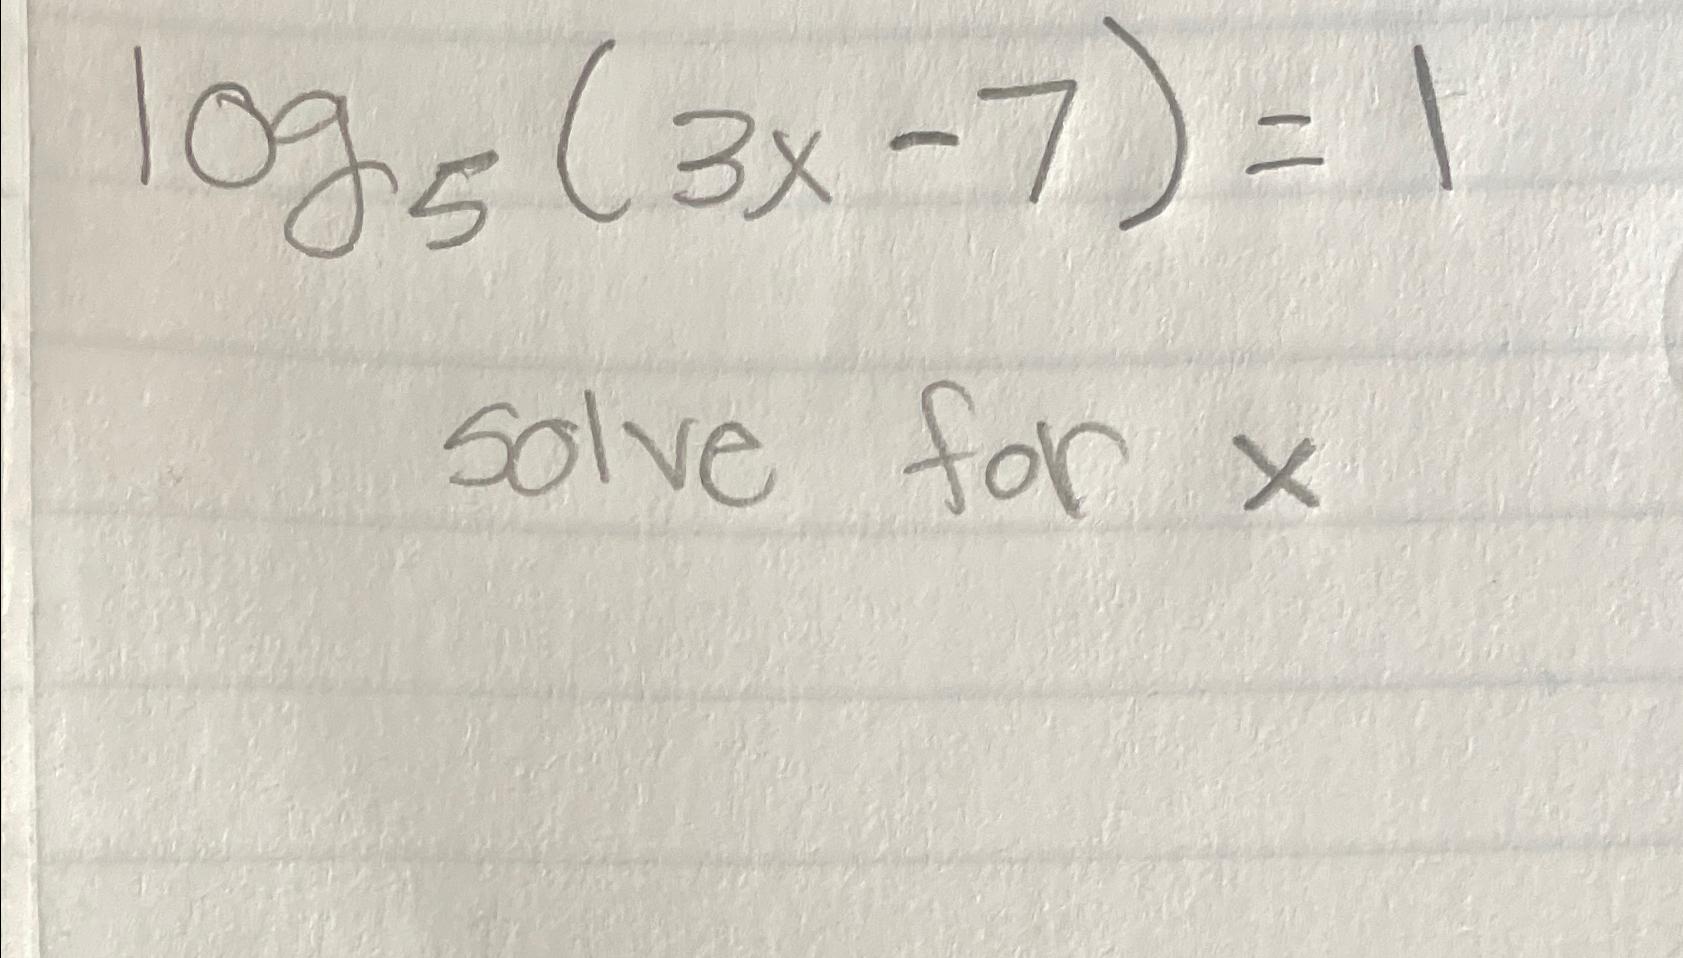 log₅(3x-7)=1
solve for x